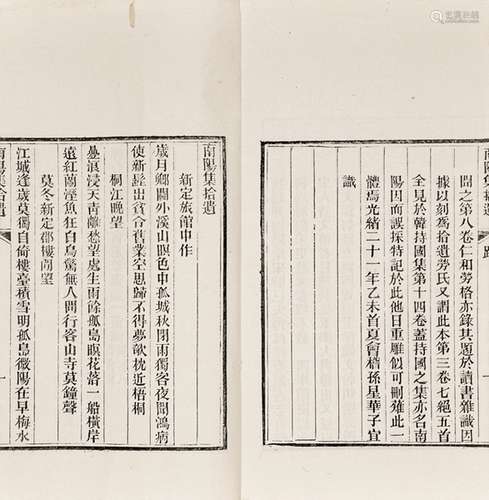 閣之第八卷仁和勞格亦錄其題於讀書雜識因
據以刻為拾遺勞氏又謂此本第三卷七絕五首
全見於韓持國集第十四卷蓋持國之集亦名南
陽因而誤採特記於此他日重雕假可刪薙此一
體焉光緒二十一年乙未首夏會稽孫星華子宜
識
南陽集拾遺
新定旅館中作
歲月鄉關外溪山暝色中孤城秋閉雨獨客夜聞鴻病
使新髭出貧合舊業空思歸不得夢欹枕近梧桐
桐江晚望
疊浪浸天青離愁望處生雨餘孤島暝花落一船橫岸
遠紅蘭溼魚狂白鳥驚無人問行客山寺莫鐘聲
莫冬新定郡樓南望
江城逢歲莫獨自倚樓臺積雪明孤島微陽在早梅水
南陽集拾遺
一